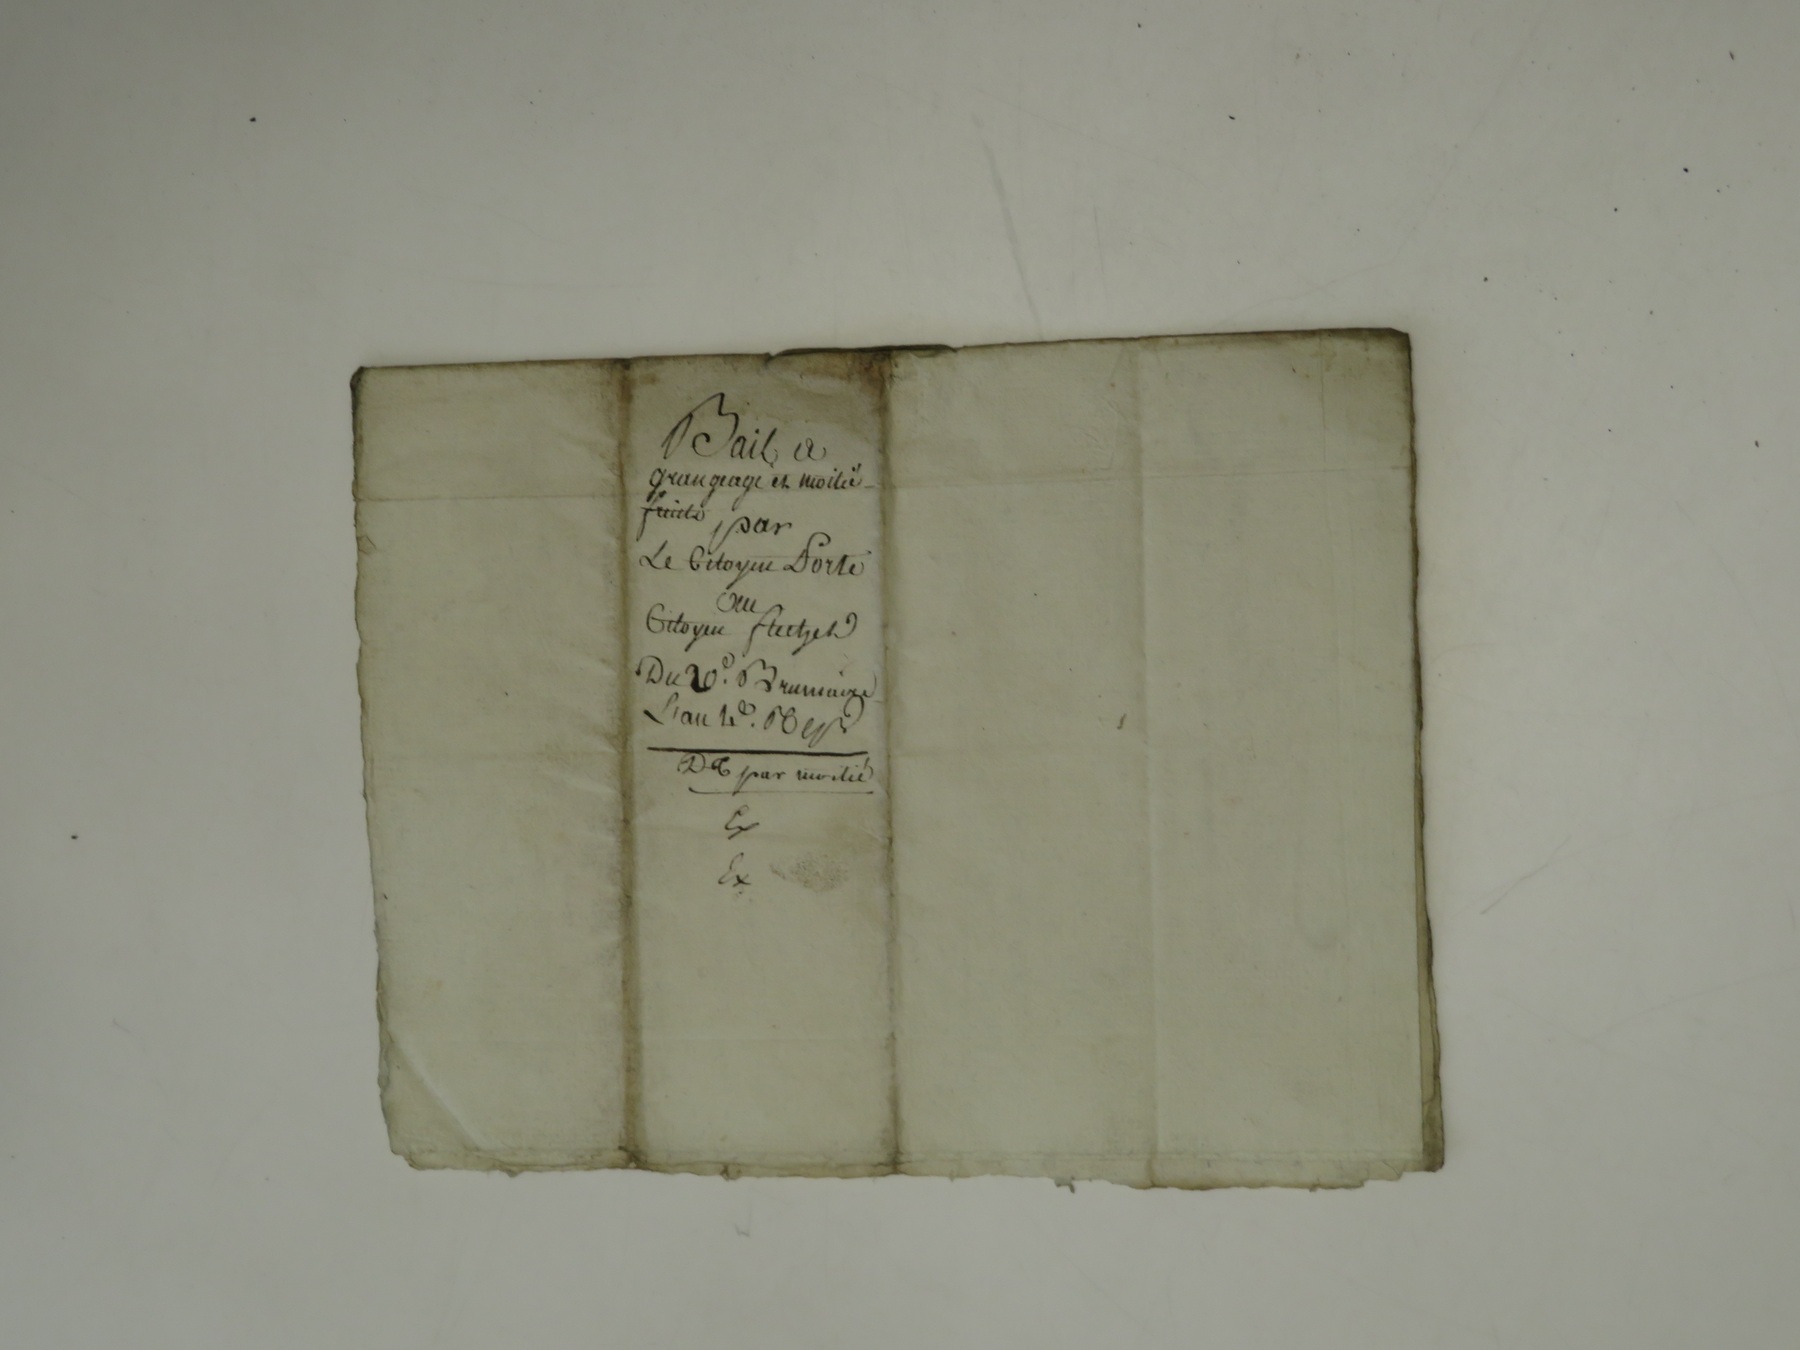 Bail a
grangeage et moitié
fruits par
Le Citoyen Porte
au
Citoyen
Du 20e. Brumaire
L'an 4e.
par moitié
Ex
Ex